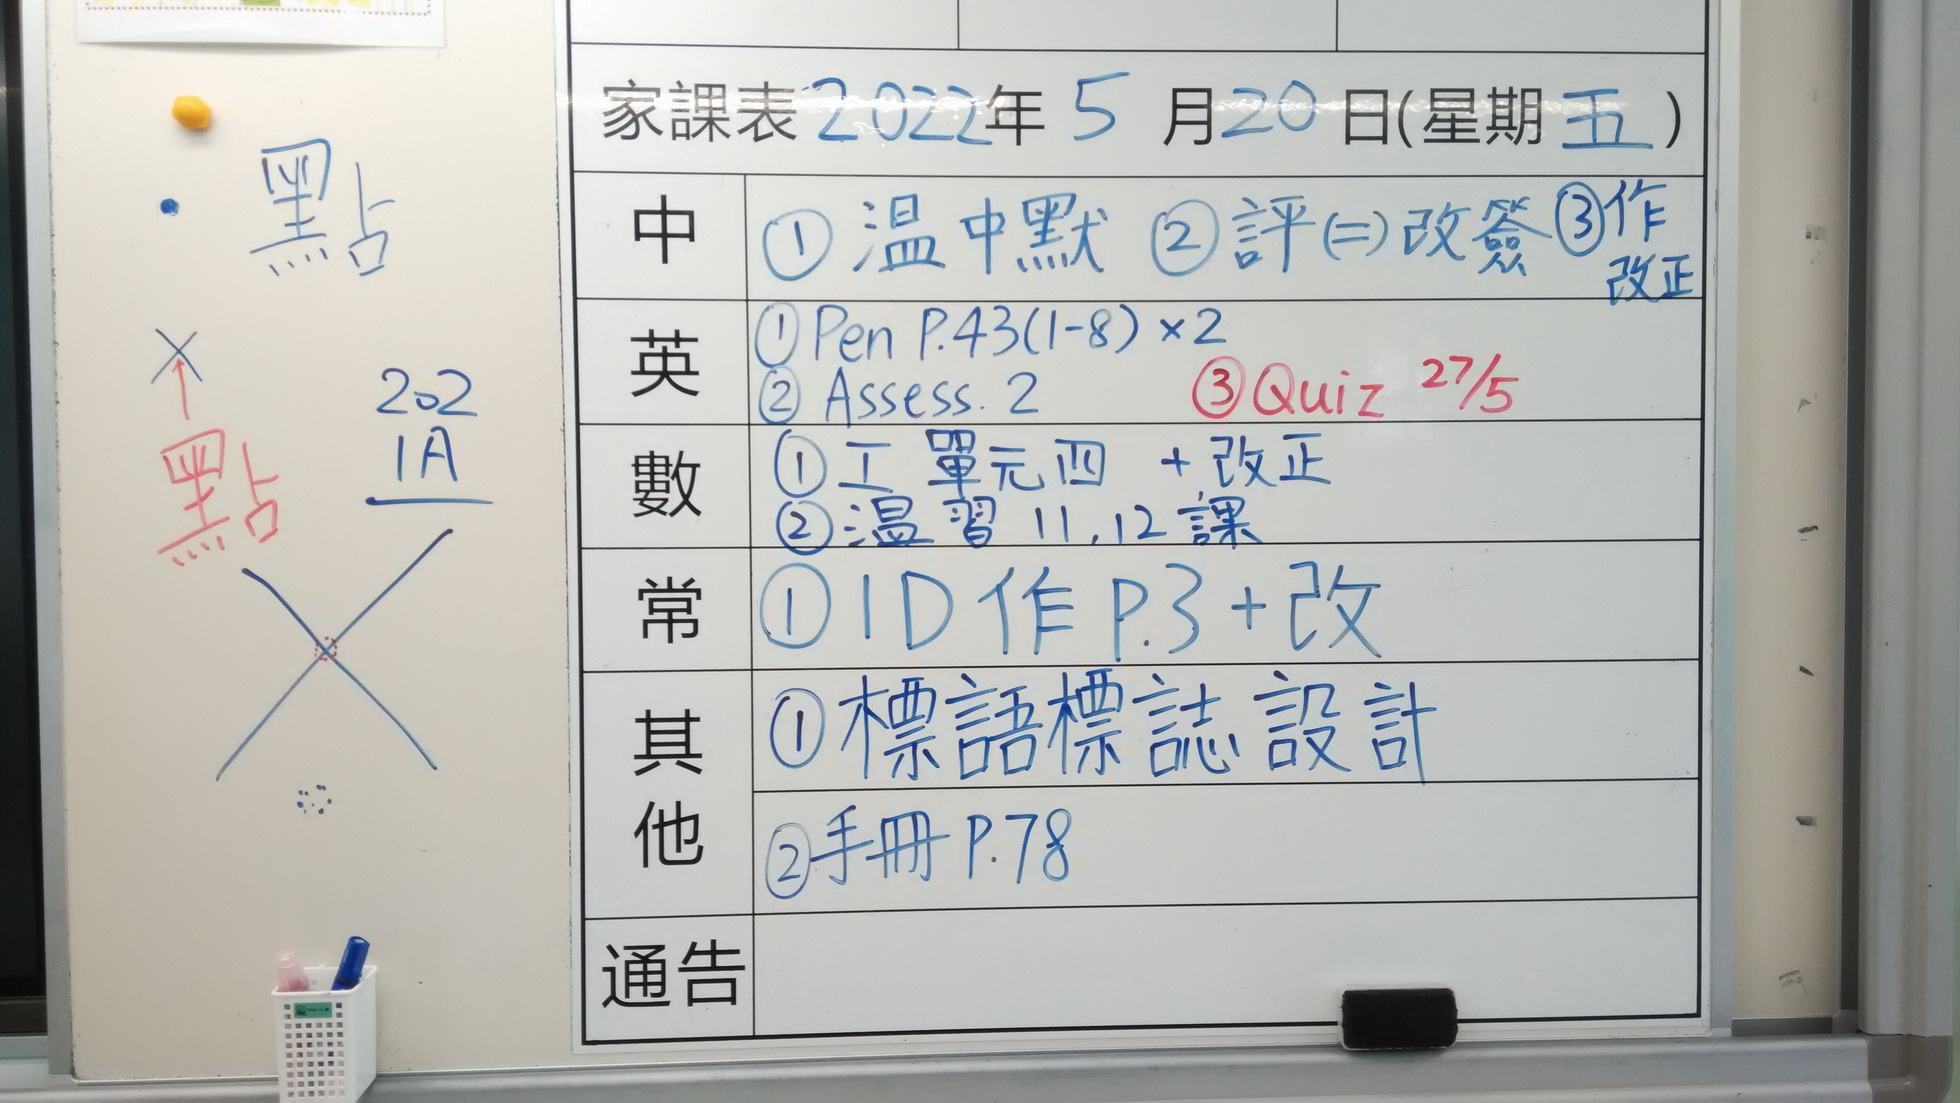 家課表 2022年 5 月 20 日(星期 五 )
中 ① 温中默 ② 評(二)改簽 ③作
改正
英
① Pen P.43(1-8) ×2
② Assess. 2 ③ Quiz 27/5
數
① 工 單元四 + 改正
② 温習 11,12 課
常 ① 1D 作 P.3 + 改
其他
① 標語標誌設計
② 手冊 P.78
通告
點
點
202
1A